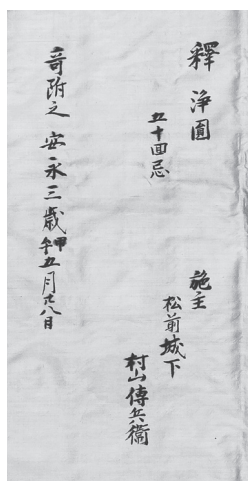 釋淨圓
五十回忌
施主
松前城下
村山傳兵衛
寄附之 安永三歳甲午五月廿八日